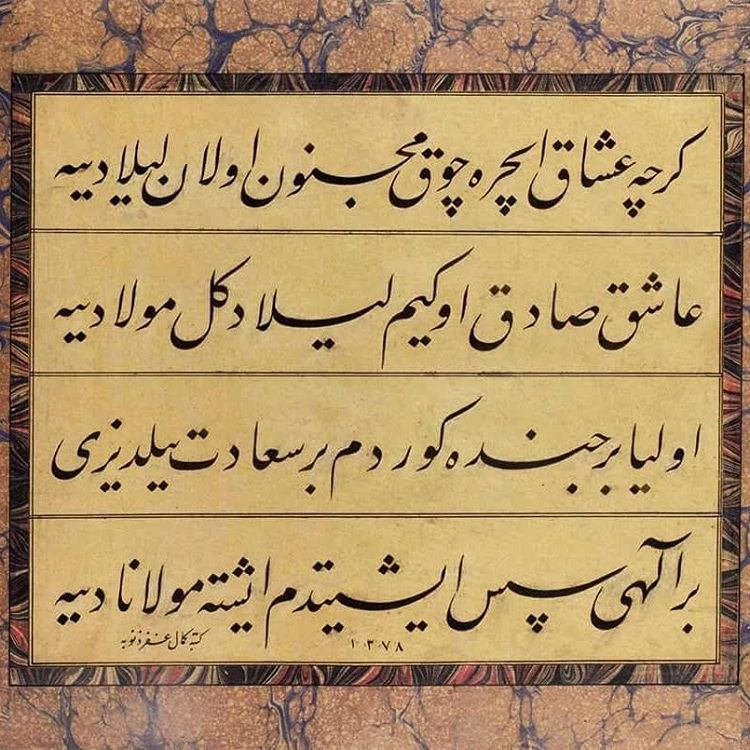 كرچه عشاق ایچره چوق مجنون اولان لیلا دییه
عاشق صادق اوكیم لیلا دكل مولا دییه
اولیا برجنده كوردم بر سعادت ییلدیزی
بر الٓهی سس ایشیتدم ایشته مولانا دییه
كتبه كمال غفر ذنوبه
١٣٧٨